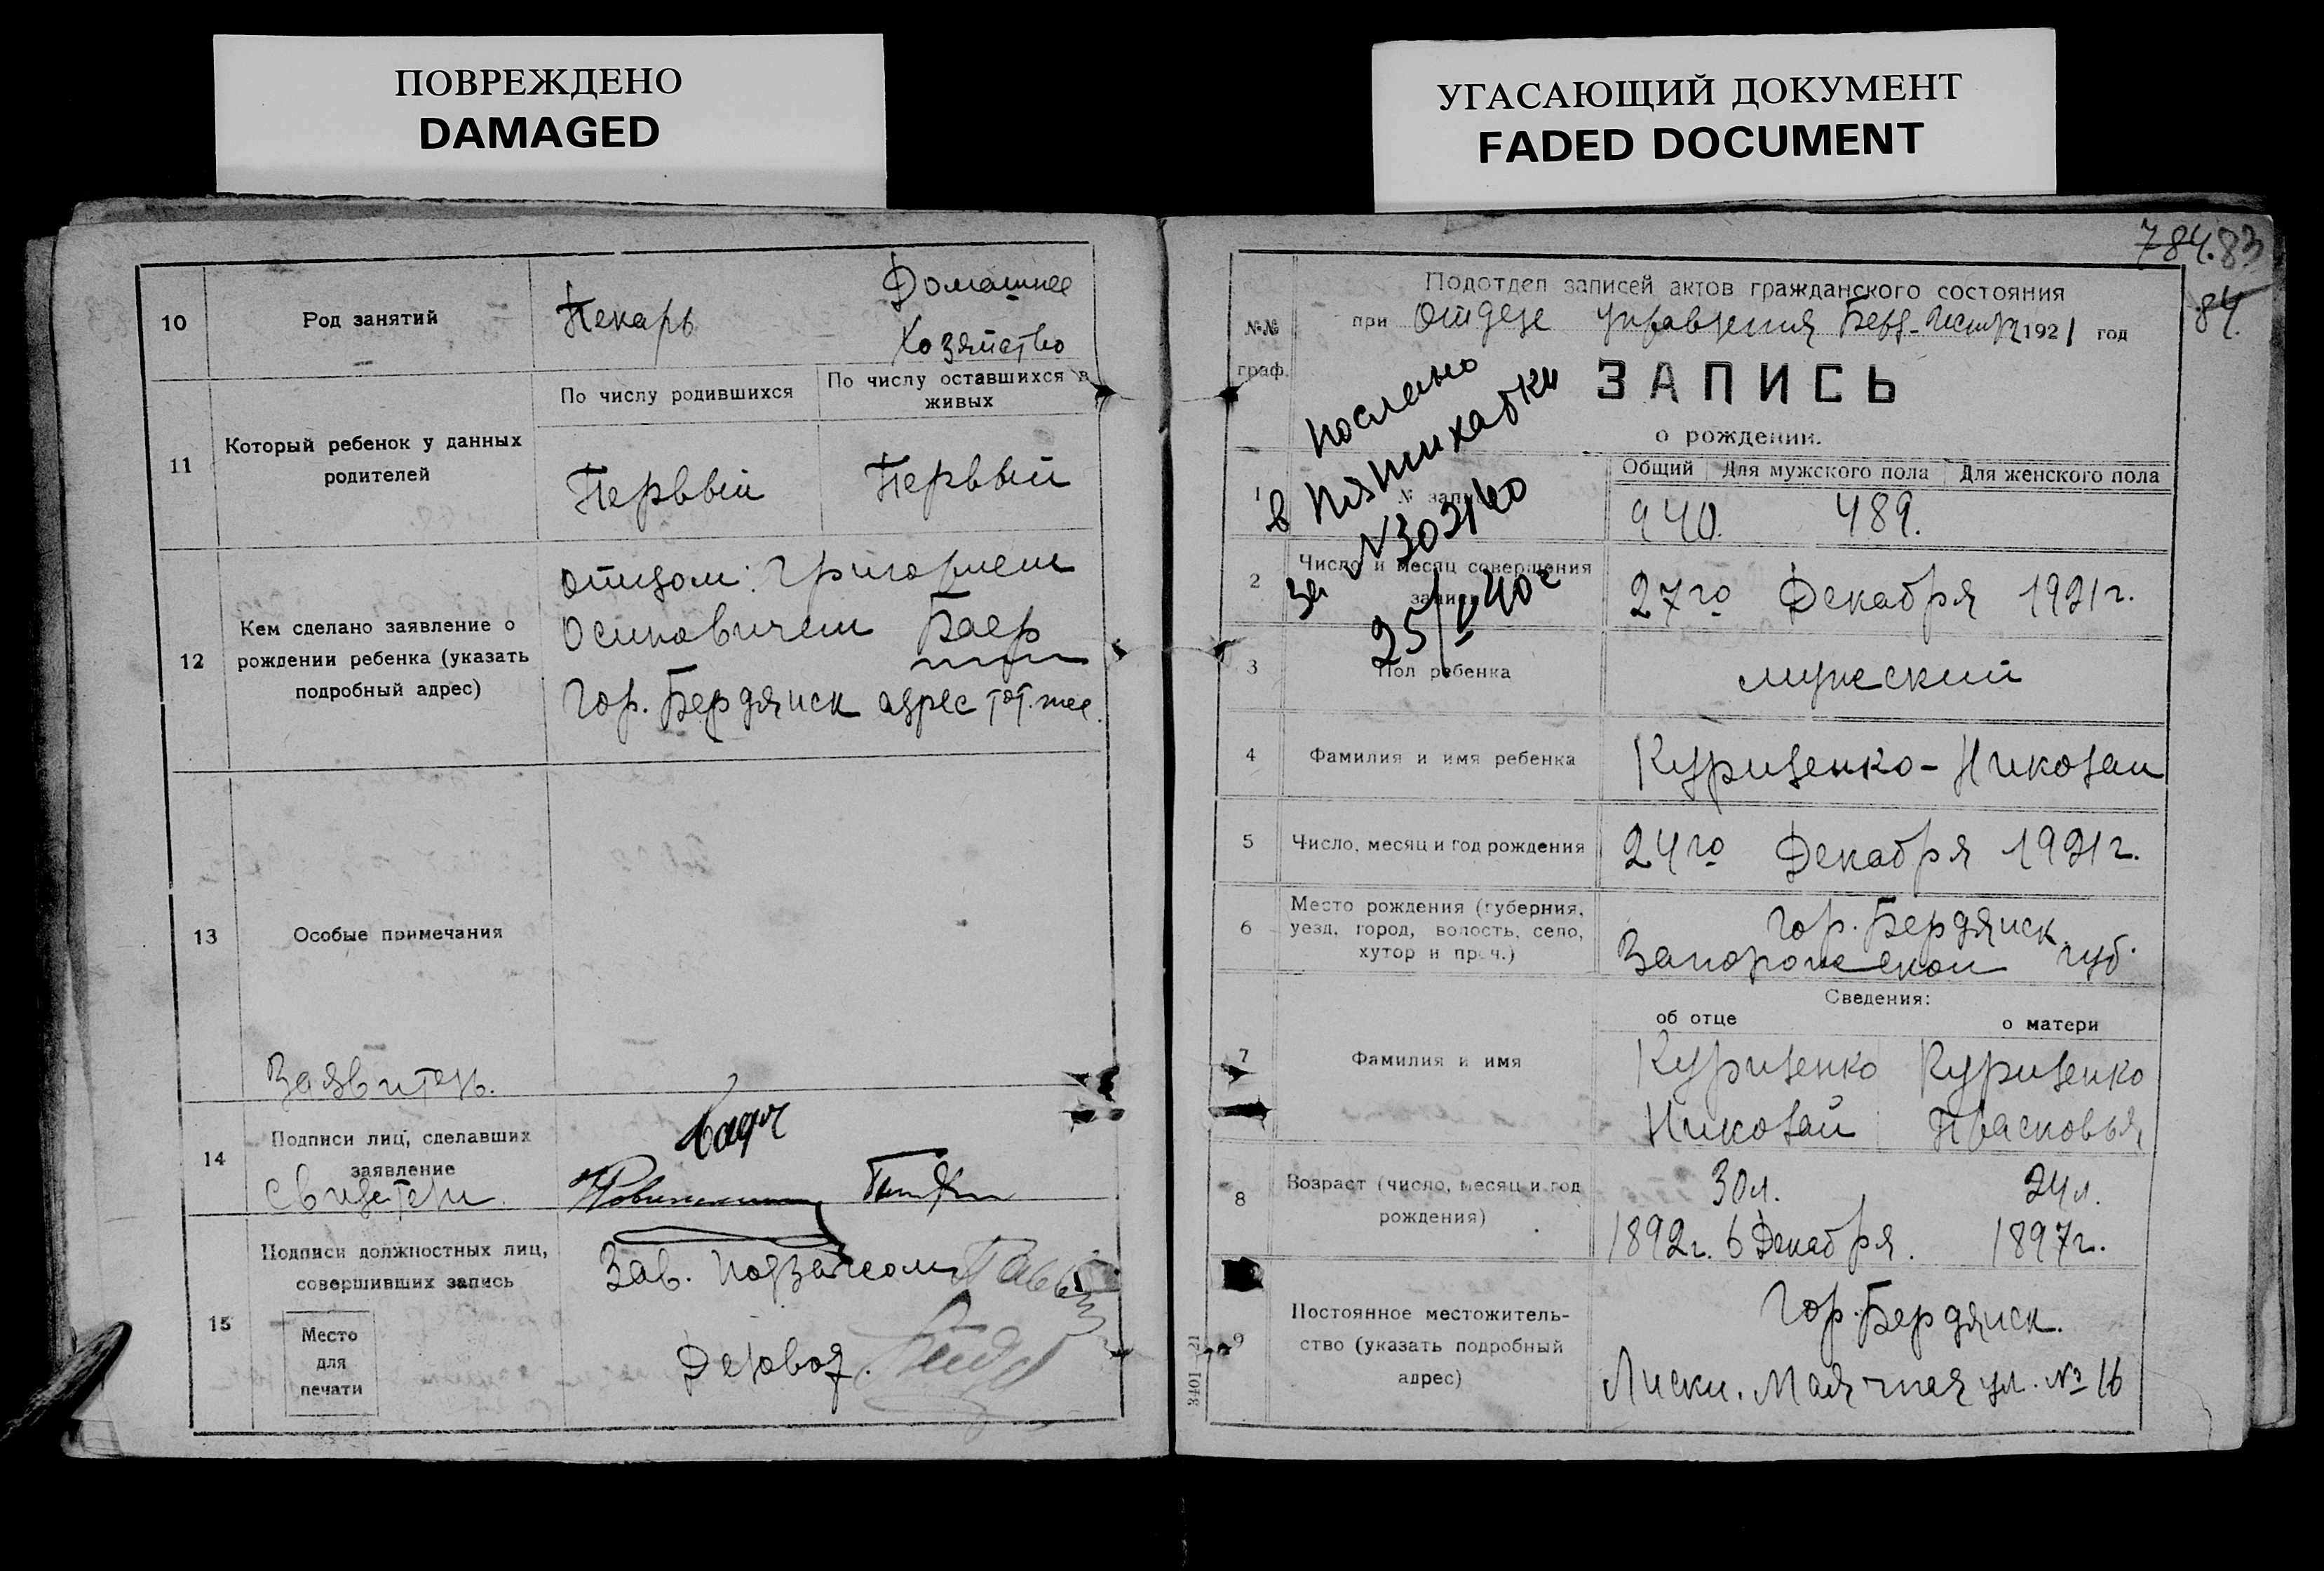 ПОВРЕЖДЕНО
DAMAGED
УГАСАЮЩИЙ ДОКУМЕНТ
FADED DOCUMENT
10
Род занятий
Пекарь
Домашнее
Хозяйство
11
Который ребенок у данных
родителей
По числу родившихся
По числу оставшихся в
живых
Первый
Первый
12
Кем сделано заявление о
рождении ребенка (указать
подробный адрес)
отцом: Григорием
Осиповичем Баер
Гор. Бердянск адрес тот.же.
13
Особые примечания
Заявитель.
14
Подписи лиц, сделавших
заявление
Свидетели
15
Подписи должностных лиц,
совершивших запись
Место
для
печати
Зав. Подзагсом
Деловод.
784.83
84.
№№
граф.
Подотдел записей актов гражданского состояния
при Отделе Управления 1921 год
ЗАПИСЬ
о рождении.
Послано
в Пятихатки
за №302160
25/V 40г
1
№ записи
Общий
Для мужского пола
Для женского пола
940.
489.
2
Число и месяц совершения
записи
27го Декабря 1921г.
3
Пол ребенка
мужеский
4
Фамилия и имя ребенка
Куриленко-Николай
5
Число, месяц и год рождения
24го Декабря 1921г.
6
Место рождения (губерния,
уезд, город, волость, село,
хутор и проч.)
Гор. Бердянск
Запорожской губ.
Сведения:
об отце
о матери
7
Фамилия и имя
Куриленко
Николай
Куриленко
Прасковья
8
Возраст (число, месяц и год
рождения)
30л.
24л.
1892г. 6 Декабря.
1897г.
9
Постоянное местожитель-
ство (указать подробный
адрес)
Гор. Бердянск.
Лиски. Маячная ул. № 16